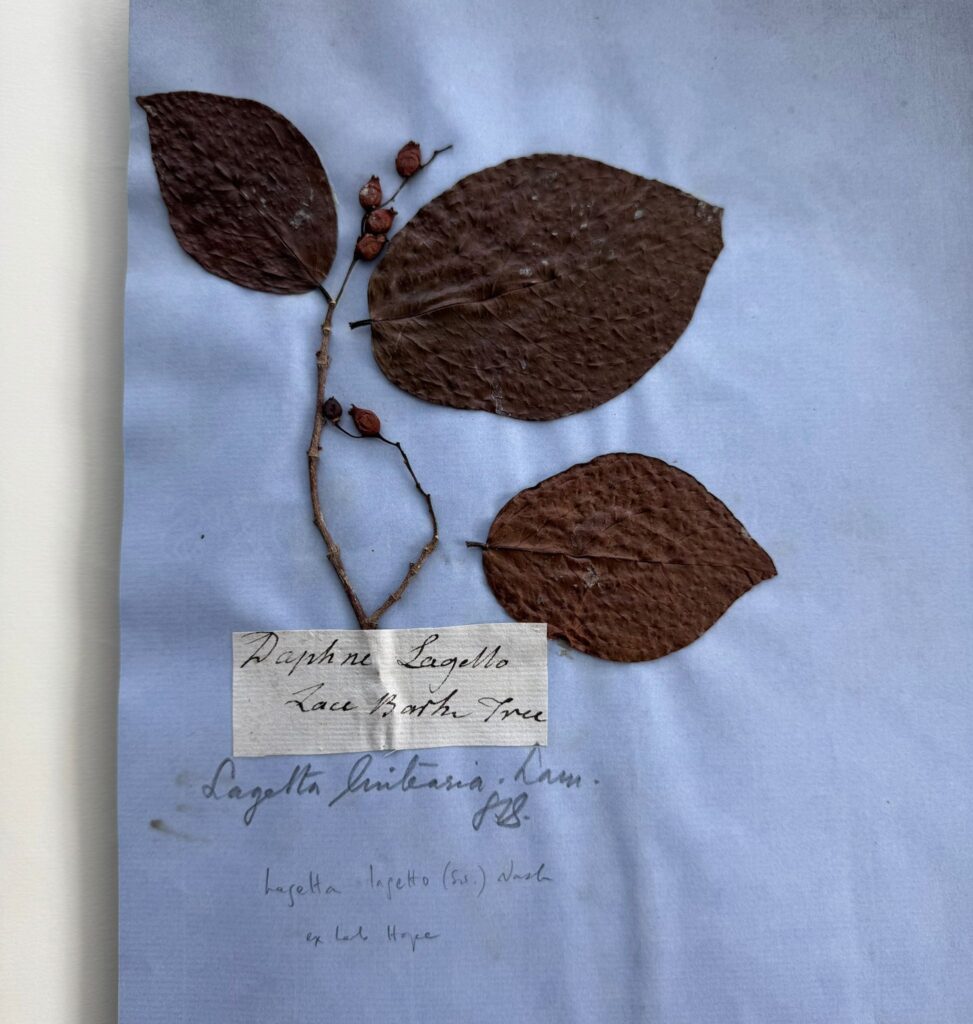 Daphne Lagetto
Lace Bark Tree
Lagetta lintearia. Lam.
Lagetta lagetto (Sw.) Nash
ex herb Hope